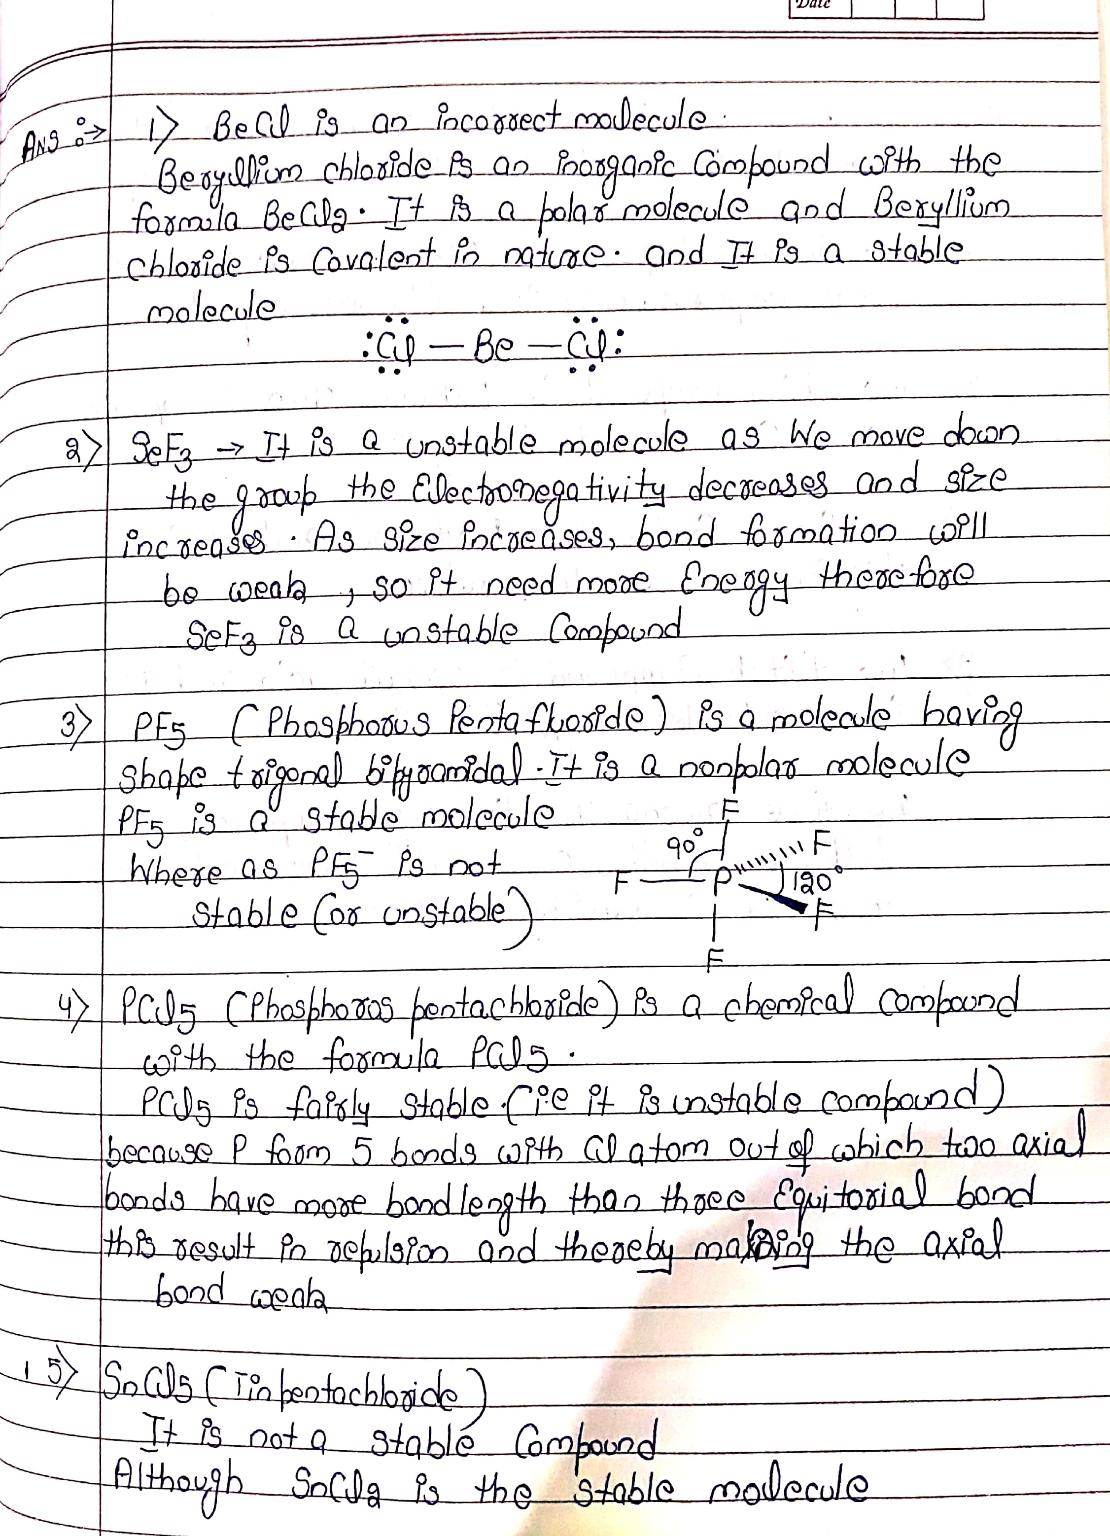 Date
Ans :→ 1) BeCl is an incorrect molecule.
Beryllium chloride is an inorganic Compound with the
formula BeCl2. It is a polar molecule and Beryllium
chloride is Covalent in nature. and It is a stable
molecule
:Cl — Be — Cl:
2) SeF3 → It is a unstable molecule as We move down
the group the Electronegativity decreases and size
increases. As size increases, bond formation will
be weak, so it need more Energy therefore
SeF3 is a unstable Compound
3) PF5 (Phosphorus Pentafluoride) is a molecule having
shape trigonal bipyramidal. It is a nonpolar molecule
PF5 is a stable molecule
Where as PF5⁻ is not
stable (or unstable)
F
90° F
F — P 120°
F
F
4) PCl5 (Phosphoros pentachloride) is a chemical compound
with the formula PCl5.
PCl5 is fairly stable. (i.e it is unstable compound)
because P form 5 bonds with Cl atom out of which two axial
bonds have more bond length than three Equitorial bond
this result in repulsion and thereby making the axial
bond weak
5) SnCl5 (Tin pentachloride)
It is not a stable Compound
Although SnCl2 is the stable molecule